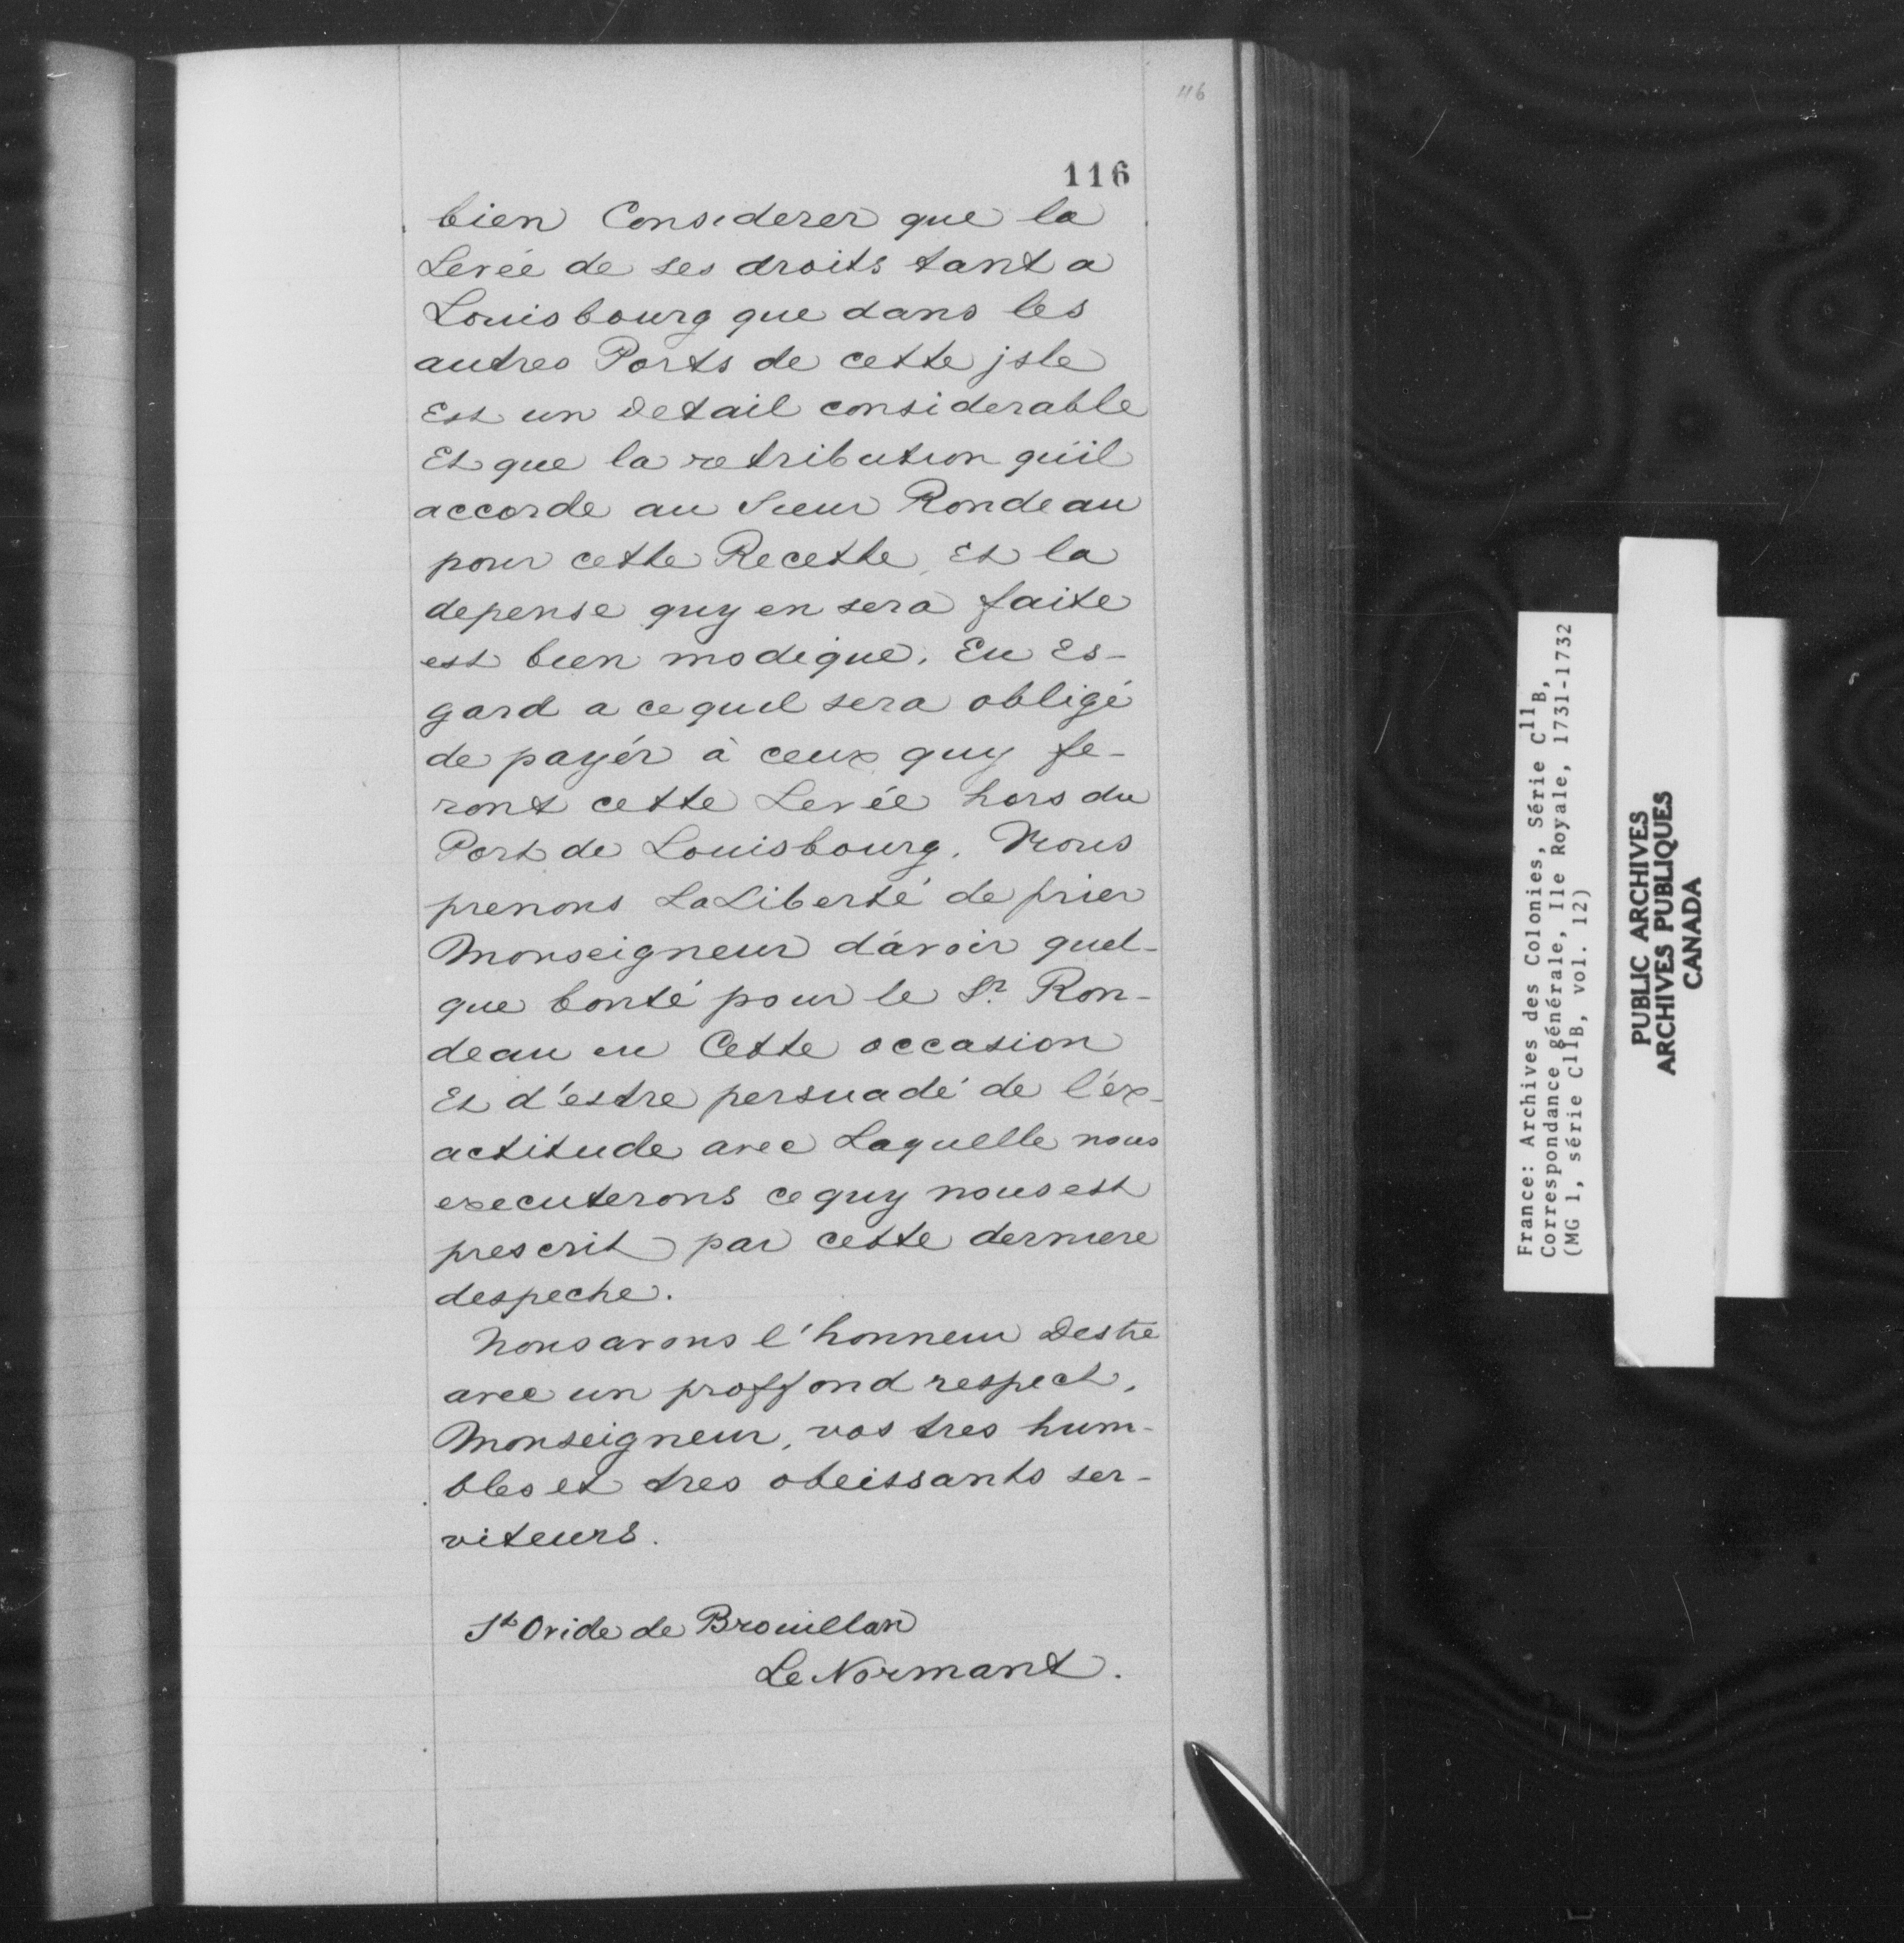 116
116
bien Considerer que la
Levée de ses droits tant a
Louisbourg que dans les
autres Ports de cette jsle
Est un Detail considerable
Et que la retribution qu'il
accorde au Sieur Rondeau
pour cette Recette, Et la
depense quy en sera faite
est bien modique. Eu Es-
gard a ce quil sera obligé
de payér à ceux quy fe-
ront cette Levée hors du
Port de Louisbourg. Nous
prenons La Liberté de prier
Monseigneur d'avoir quel-
que bonté pour le Sr. Ron-
deau en Cette occasion
Et d'estre persuadé de l'éx-
actitude avec Laquelle nous
executerons ce quy nous est
prescrit par cette derniere
despeche.
Nous avons l'honneur Destre
avec un proffond respect,
Monseigneur, vos tres hum-
bles et tres obeissants ser-
viteurs.
St Ovide de Brouillan
Le Normant.
France: Archives des Colonies, Série C11B,
Correspondance générale, Ile Royale, 1731-1732
(MG 1, série C11B, vol. 12)
PUBLIC ARCHIVES
ARCHIVES PUBLIQUES
CANADA